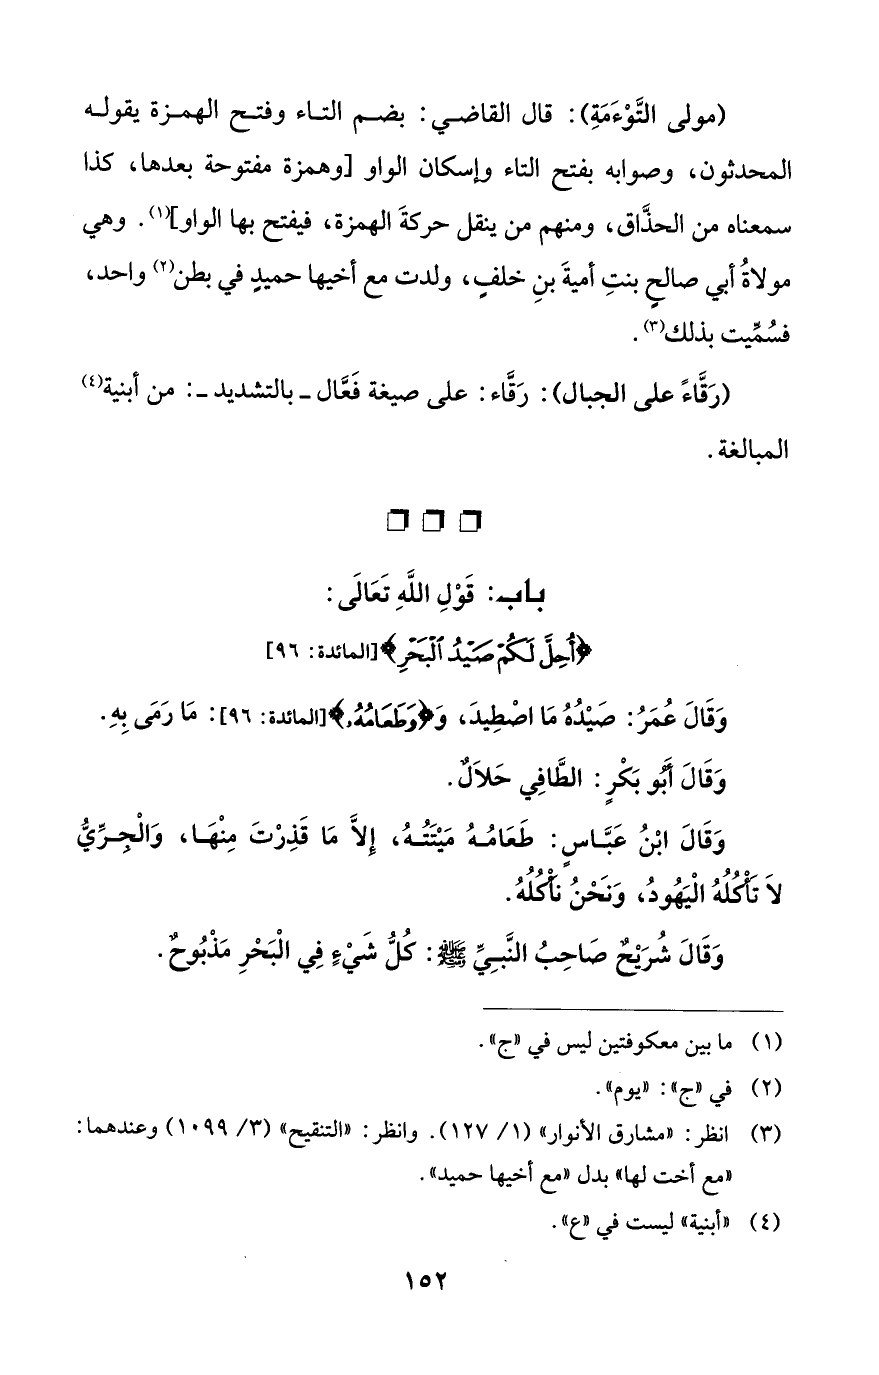 (مولى التَّوْءَمَةِ): قال القاضي: بضم التاء وفتح الهمزة يقوله
المحدثون، وصوابه بفتح التاء وإسكان الواو [وهمزة مفتوحة بعدها، كذا
سمعناه من الحذَّاق، ومنهم من ينقل حركةَ الهمزة، فيفتح بها الواو](١). وهي
مولاةُ أبي صالحٍ بنتِ أميةَ بنِ خلفٍ، ولدت مع أخيها حميدٍ في بطن(٢) واحد،
فسُمِّيت بذلك(٣).
(رَقَّاءً على الجبال): رَقَّاء: على صيغة فَعَّال ـ بالتشديد ـ: من أبنية(٤)
المبالغة.
باب: قَوْلِ اللَّهِ تَعَالَى:
﴿أُحِلَّ لَكُمْ صَيْدُ ٱلْبَحْرِ﴾ [المائدة: ٩٦]
وَقَالَ عُمَرُ: صَيْدُهُ مَا اصْطِيدَ، وَ﴿وَطَعَامُهُۥ﴾ [المائدة: ٩٦]: مَا رَمَى بِهِ.
وَقَالَ أَبُو بَكْرٍ: الطَّافِي حَلاَلٌ.
وَقَالَ ابْنُ عَبَّاسٍ: طَعَامُهُ مَيْتَتُهُ، إِلاَّ مَا قَذِرْتَ مِنْهَا، وَالْجِرِّيُّ
لاَ تَأْكُلُهُ الْيَهُودُ، وَنَحْنُ نَأْكُلُهُ.
وَقَالَ شُرَيْحٌ صَاحِبُ النَّبِيِّ ﷺ: كُلُّ شَيْءٍ فِي الْبَحْرِ مَذْبُوحٌ.
(١) ما بين معكوفتين ليس في «ج».
(٢) في «ج»: «يوم».
(٣) انظر: «مشارق الأنوار» (١/ ١٢٧). وانظر: «التنقيح» (٣/ ١٠٩٩) وعندهما:
«مع أخت لها» بدل «مع أخيها حميد».
(٤) «أبنية» ليست في «ع».
١٥٢